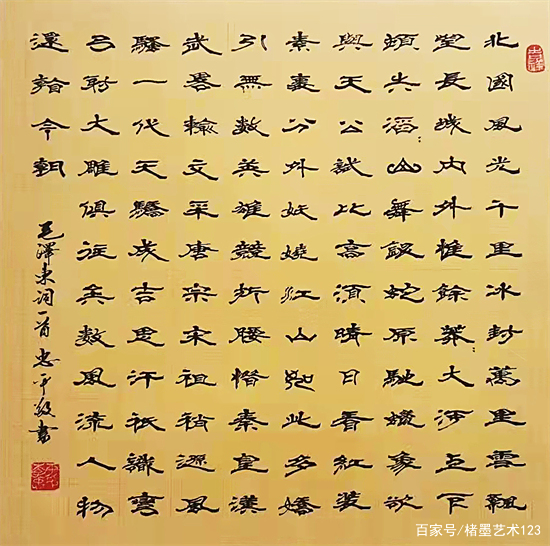 北國風光千里冰封萬里雪飄
望長城内外惟餘莽：大河上下
頓失滔：山舞銀蛇原馳蠟象欲
與天公試比高須晴日看紅裝
素裹分外妖嬈江山如此多嬌
引無數英雄競折腰惜秦皇漢
武略輸文采唐宗宋祖稍遜風
騷一代天驕成吉思汗祇識彎
弓射大雕俱往矣數風流人物
還看今朝
毛澤東詞一首 忠平敬書
百家号/楮墨艺术123